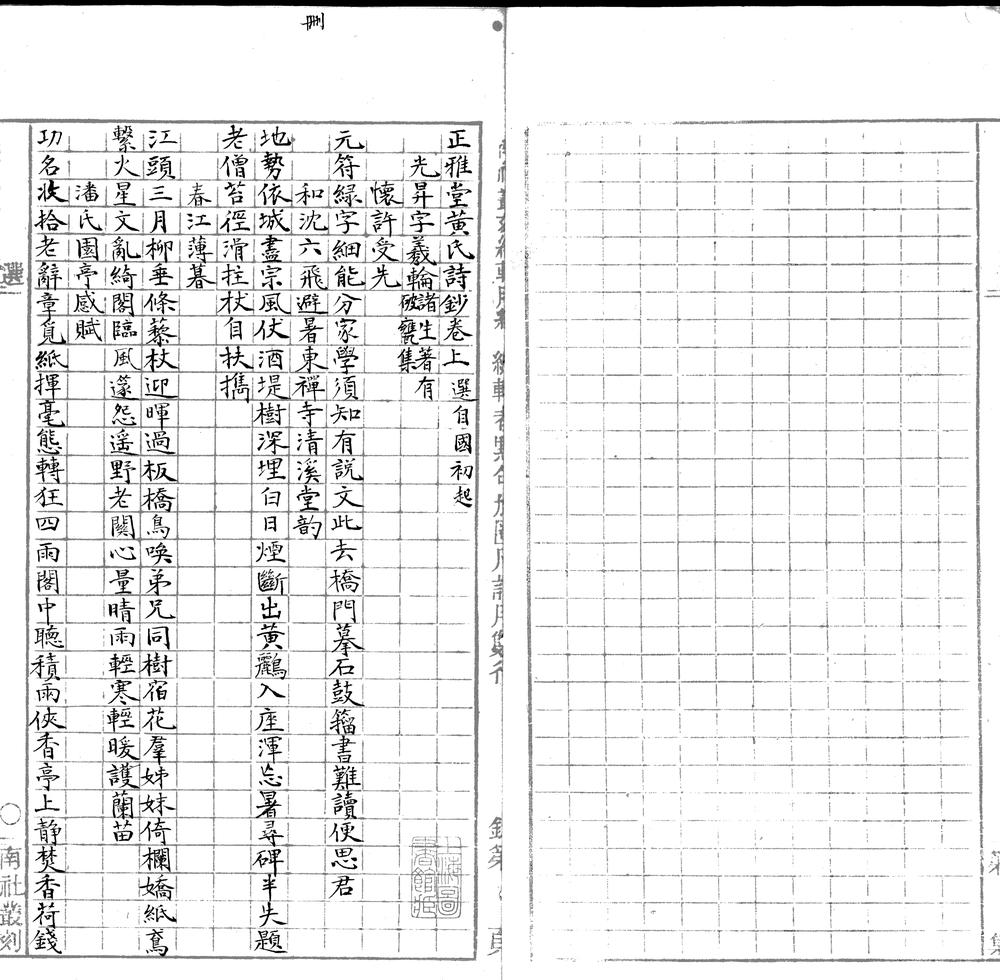 刪
正雅堂黃氏詩鈔卷上 選自國初起
光昇字羲輪 諸生著有破甕集
懷許受先
元符綠字細能分家學須知有説文此去橋門摹石鼓籀書難讀便思君
和沈六飛避暑東禪寺清溪堂韵
地勢依城盡宗風仗酒堤樹深埋白日煙斷出黃鸝入座渾忘暑尋碑半失題
老僧苔徑滑拄杖自扶攜
春江薄暮
江頭三月柳垂條藜杖迎暉過板橋鳥喚弟兄同樹宿花羣姊妹倚欄嬌紙鳶
繫火星文亂綺閣臨風邃怨遥野老關心量晴雨輕寒輕暖護蘭苗
潘氏園亭感賦
功名收拾老辭章覓紙揮毫態轉狂四雨閣中聽積雨俠香亭上静焚香荷錢
選
南社叢刻
上海圖書館藏